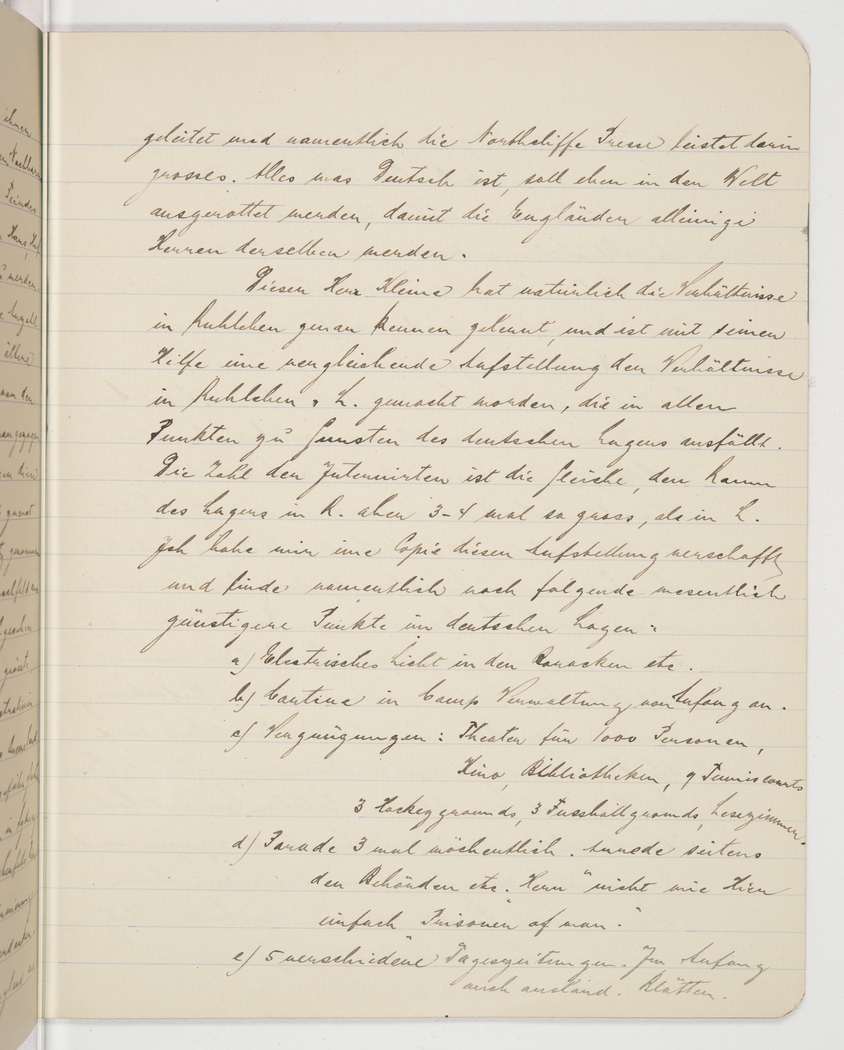 geleitet und namentlich die Northcliffe Presse leistet darin
grosses. Alles was Deutsch ist, soll eben in der Welt
ausgerottet werden, damit die Engländer alleinige
Herren derselben werden.
Dieser Herr Kleine hat natürlich die Verhältnisse
in Ruhleben genau kennen gelernt, und ist mit seiner
Hilfe eine vergleichende Aufstellung der Verhältnisse
in Ruhleben & L. gemacht worden, die in allen
Punkten zu Gunsten des deutschen Lagers ausfällt.
Die Zahl der Internirten ist die Gleiche, der Raum
des Lagers in R. aber 3-4 mal so gross, als in L.
Ich habe mir eine Copie dieser Aufstellung verschafft,
und finde namentlich noch folgende wesentlich
günstigere Punkte im deutschen Lager:
a) Electrisches Licht in den Baracken etc.
b) Cantine in Camp Verwaltung von Anfang an.
c) Vergnügungen: Theater für 1000 Personen,
Kino, Bibliotheken, 9 Tenniscourts
3 Hockeygrounds, 3 Fussballgrounds, Lesezimmer.
d) Parade 3 mal wöchentlich. Anrede seitens
der Behörden etc. "Herr" nicht wie Hier
einfach "Prisoner of war."
e) 5 verschiedene Tageszeitungen. Im Anfang
auch ausländ. Blätter.